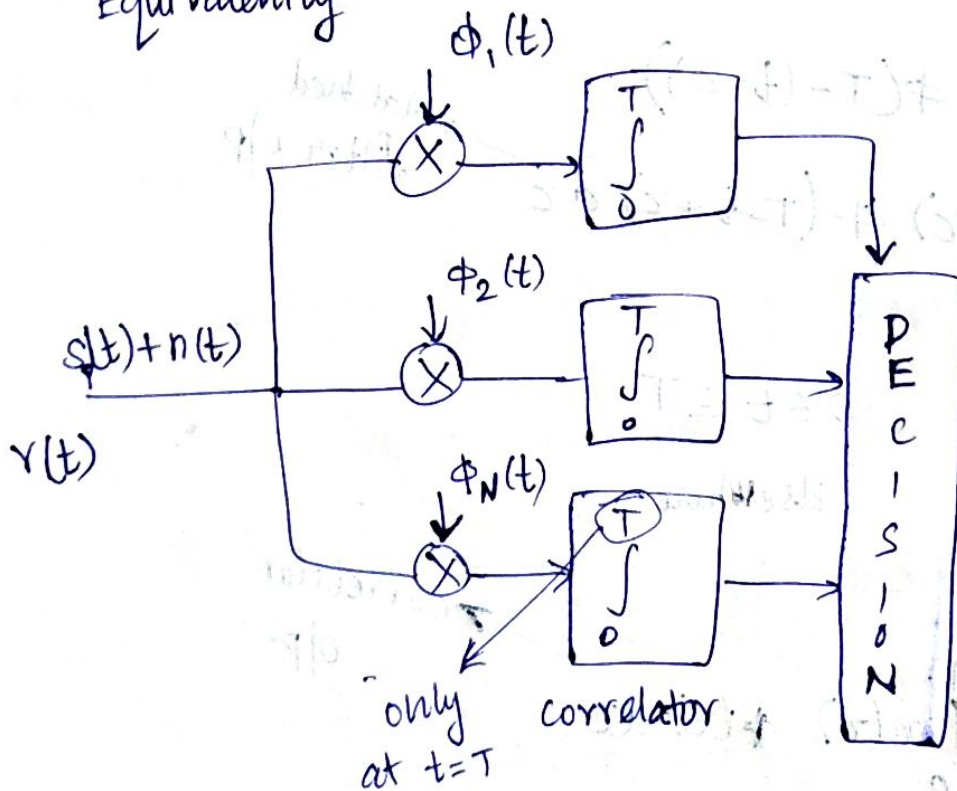 Equivalently
Φ₁(t)
X
T
∫
0
Φ₂(t)
s(t)+n(t)
X
T
∫
0
r(t)
Φ_N(t)
X
T
∫
0
DECISION
only
at t=T
correlator